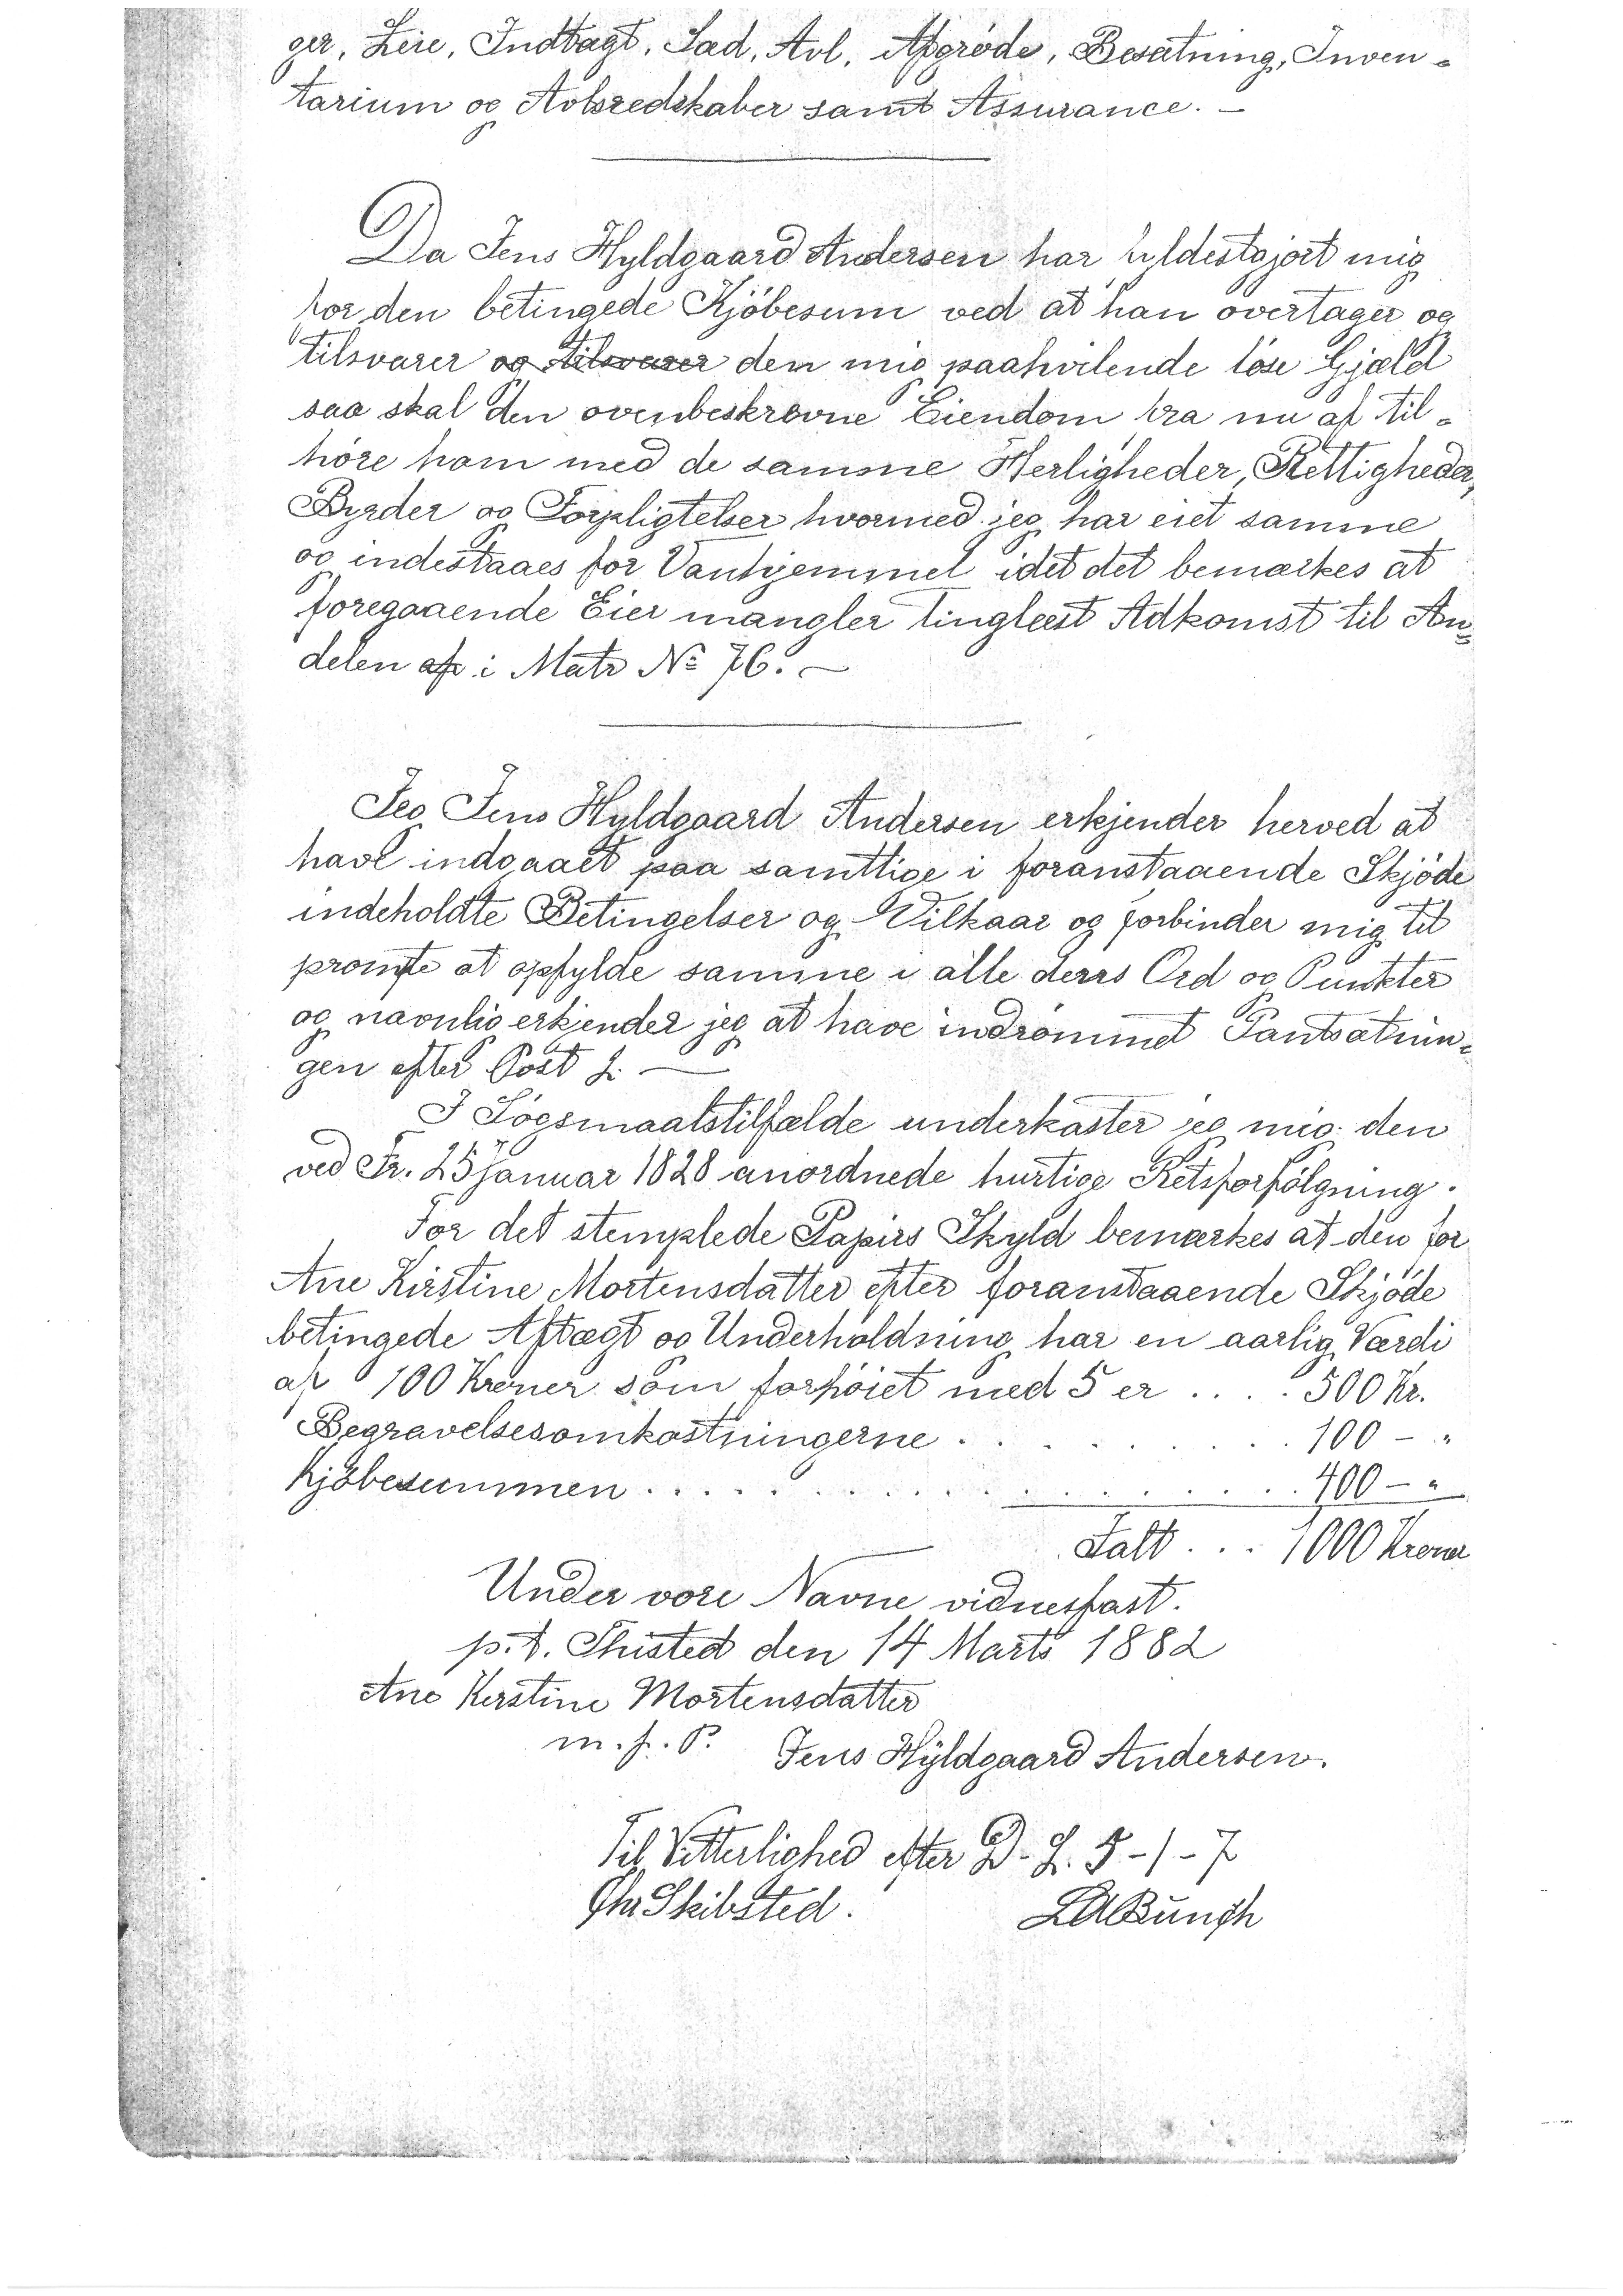 ger, Leie, Indtægt, Sæd, Avl, Afgrøde, Besætning, Inven-
tarium og Avlsredskaber samt Assurance. —
Da Jens Hyldgaard Andersen har fyldestgjort mig
for den betingede Kjöbesum ved at han overtager og
tilsvarer og tilsvarer den mig paahvilende löse Gjæld
saa skal den ovenbeskrevne Eiendom fra nu af til-
høre ham med de samme Herligheder, Rettigheder,
Byrder og Forpligtelser hvormed jeg har eiet samme
og indestaaes for Vanhjemmel idet det bemærkes at
foregaaende Eier mangler tinglæst Adkomst til An-
delen af i Matr No 76. —
Jeg Jens Hyldgaard Andersen erkjender herved at
have indgaaet paa samttlige i foranstaaende Skjöde
indeholdte Betingelser og Vilkaar og forbinder mig til
promte at opfylde samme i alle deres Ord og Punkter
og navnlig erkjender jeg at have indrömmet Pantsætnin-
gen efter Post 2. —
I Sögsmaalstilfælde underkaster jeg mig den
ved Fr. 25 Januar 1828 anordnede hurtige Retsforfölgning.
For det stemplede Papirs Skyld bemærkes at den for
Ane Kirstine Mortensdatter efter foranstaaende Skjöde
betingede Aftægt og Underholdning har en aarlig Værdi
af 100 Kroner som forhöiet med 5 er . . . . 500 Kr.
Begravelsesomkostningerne . . . . . . . . . 100 – "
Kjöbesummen . . . . . . . . . . . . . . . . 400 – "
Ialt . . . 1000 Kroner
Under vore Navne vidnesfast.
p.t. Thisted den 14 Marts 1882
Ane Kerstine Mortensdatter
m. f. P. Jens Hÿldgaard Andersen.
Til Vitterlighed efter D. L. 5-1-7
Chr Skibsted.